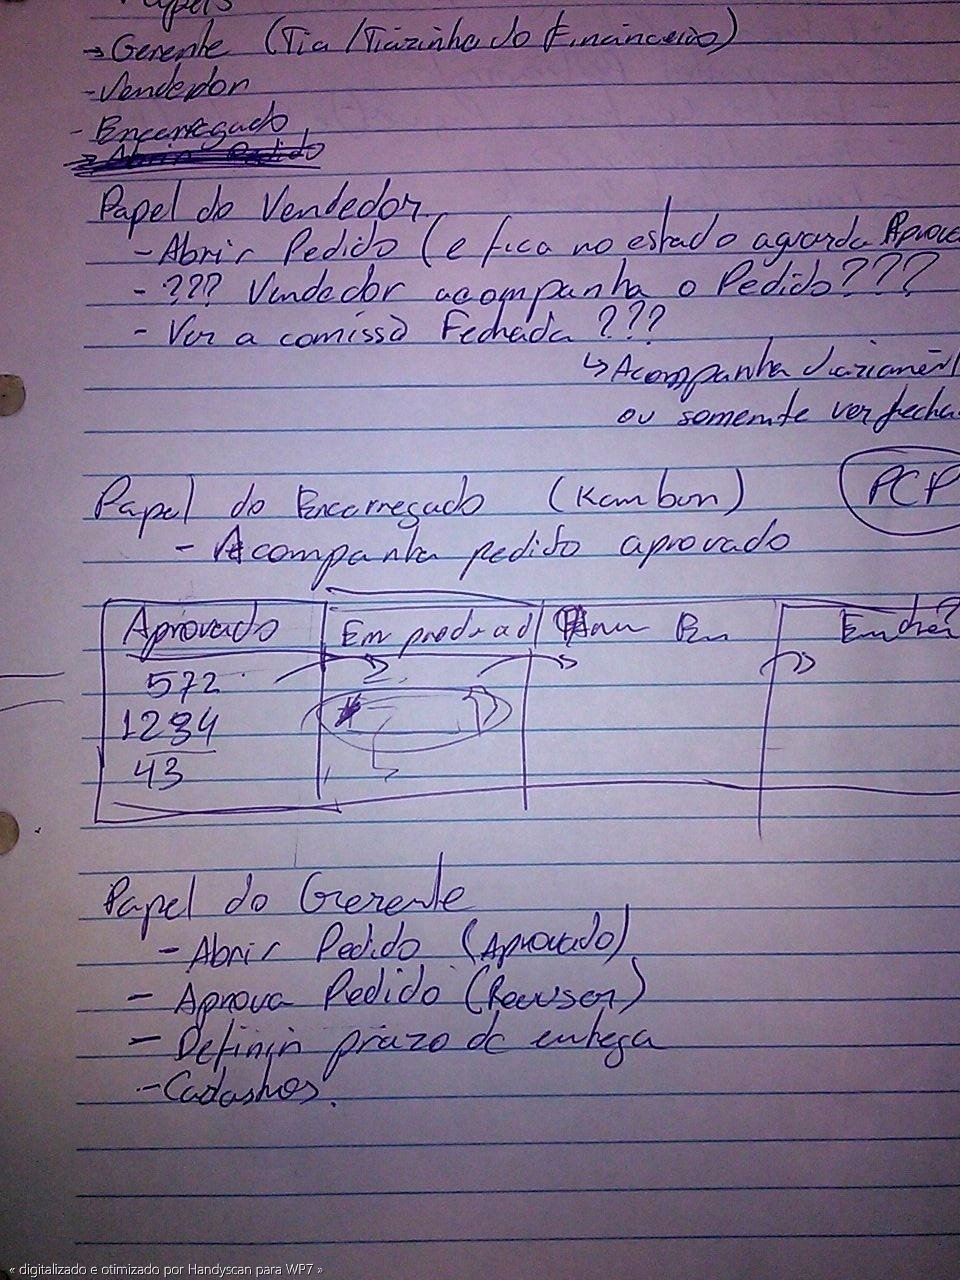 Papéis
→ Gerente (Tia / Tiazinha do Financeiro)
- Vendedor
- Encarregado
Abrir Pedido
Papel do Vendedor
- Abrir Pedido (e fica no estado aguarda Aprova
- ??? Vendedor acompanha o Pedido ???
- Ver a comissã Fechada ???
↳ Acompanha diariament
ou somente ver fecha
Papel do Encarregado (Kamban)
PCP
- Acompanha pedido aprovado
Aprovado Em En
572
1234
43
Papel do Gerente
- Abrir Pedido (Aprovado)
- Aprova Pedido (Recusar)
- Definir prazo de entega
- Cadastros.
« digitalizado e otimizado por Handyscan para WP7 »